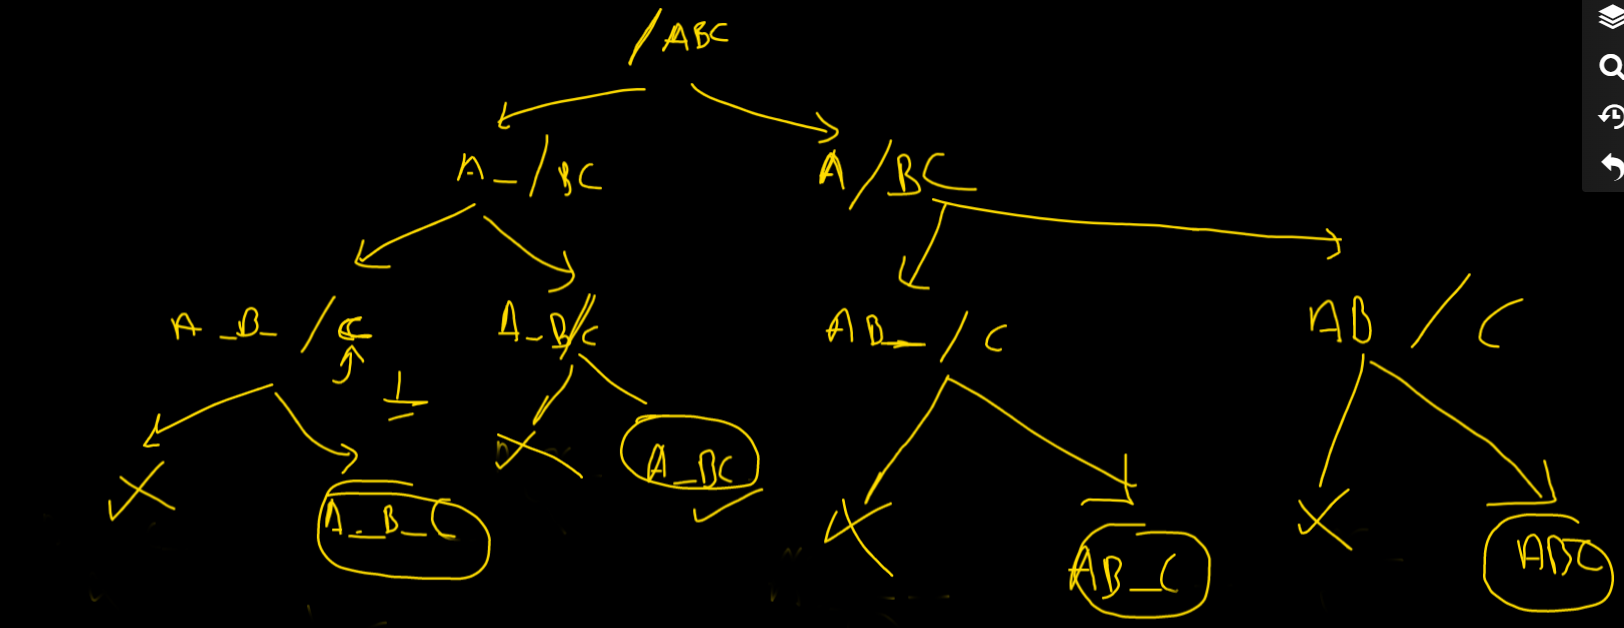 /ABC
A_/BC
A/BC
A_B_/C
A_B/C
AB_/C
AB / C
A_BC
A_B_C
AB_C
ABC